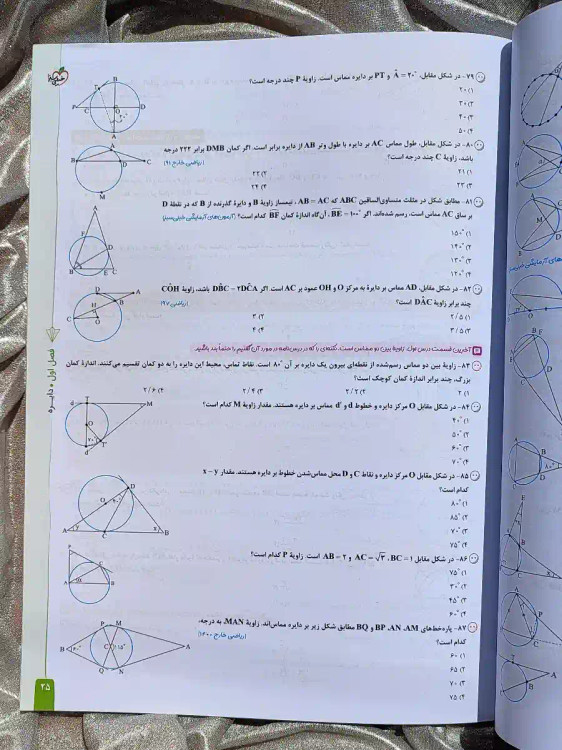 ۷۹- در شکل مقابل، Â = ۲۰° و PT بر دایره مماس است. زاویهٔ P چند درجه است؟
۱) ۲۰
۲) ۳۰
۳) ۴۰
۴) ۵۰
۸۰- در شکل مقابل، طول مماس AC بر دایره با طول وتر AB از دایره برابر است. اگر کمان DMB برابر ۲۲۲ درجه
باشد، زاویهٔ C چند درجه است؟ (ریاضی خارج ۹۱)
۱) ۲۱ ۲) ۲۲
۳) ۲۳ ۴) ۲۴
۸۱- مطابق شکل در مثلث متساوی‌الساقین ABC که AB = AC، نیمساز زاویهٔ B و دایرهٔ گذرنده از B که در نقطهٔ D
بر ساق AC مماس است، رسم شده‌اند. اگر BE = ۱۰۰°، آن‌گاه اندازهٔ کمان BF کدام است؟ (آزمون‌های آزمایشی خیلی‌سبز)
۱) ۱۵۰°
۲) ۱۴۰°
۳) ۱۳۰°
۴) ۱۲۰°
۸۲- در شکل مقابل، AD مماس بر دایره به مرکز O و OH عمود بر AC است. اگر DB̂C = ۲DĈA باشد، زاویهٔ CÔH
چند برابر زاویهٔ DÂC است؟ (ریاضی ۹۷)
۱) ۲/۵ ۲) ۳
۳) ۳/۵ ۴) ۴
آخرین قسمت درس اول، زاویهٔ بین دو مماس است. نکته‌ای را که در درس‌نامه در مورد آن گفتیم را حتماً بلد باشید.
۸۳- زاویهٔ بین دو مماس رسم‌شده از نقطه‌ای بیرون یک دایره بر آن ۸۰° است. نقاط تماس، محیط این دایره را به دو کمان تقسیم می‌کنند. اندازهٔ کمان
بزرگ، چند برابر اندازهٔ کمان کوچک است؟
۱) ۲ ۲) ۲/۲ ۳) ۲/۴ ۴) ۲/۶
۸۴- در شکل مقابل O مرکز دایره و خطوط d و d′ مماس بر دایره هستند. مقدار زاویهٔ M کدام است؟
۱) ۴۰°
۲) ۵۰°
۳) ۶۰°
۴) ۷۰°
۸۵- در شکل مقابل O مرکز دایره و نقاط C و D محل مماس‌شدن خطوط بر دایره هستند. مقدار x − y
کدام است؟
۱) ۸۰°
۲) ۸۵°
۳) ۷۰°
۴) ۷۵°
۸۶- در شکل مقابل BC = ۱، AC = √۳ و AB = ۲ است. زاویهٔ P کدام است؟
۱) ۷۵°
۲) ۳۰°
۳) ۴۵°
۴) ۶۰°
۸۷- پاره‌خط‌های AM، AN، BP و BQ مطابق شکل زیر بر دایره مماس‌اند. زاویهٔ MAN، به درجه،
کدام است؟ (ریاضی خارج ۱۴۰۰)
۱) ۶۰
۲) ۶۵
۳) ۷۰
۴) ۷۵
فصل اول • دایره
۲۵